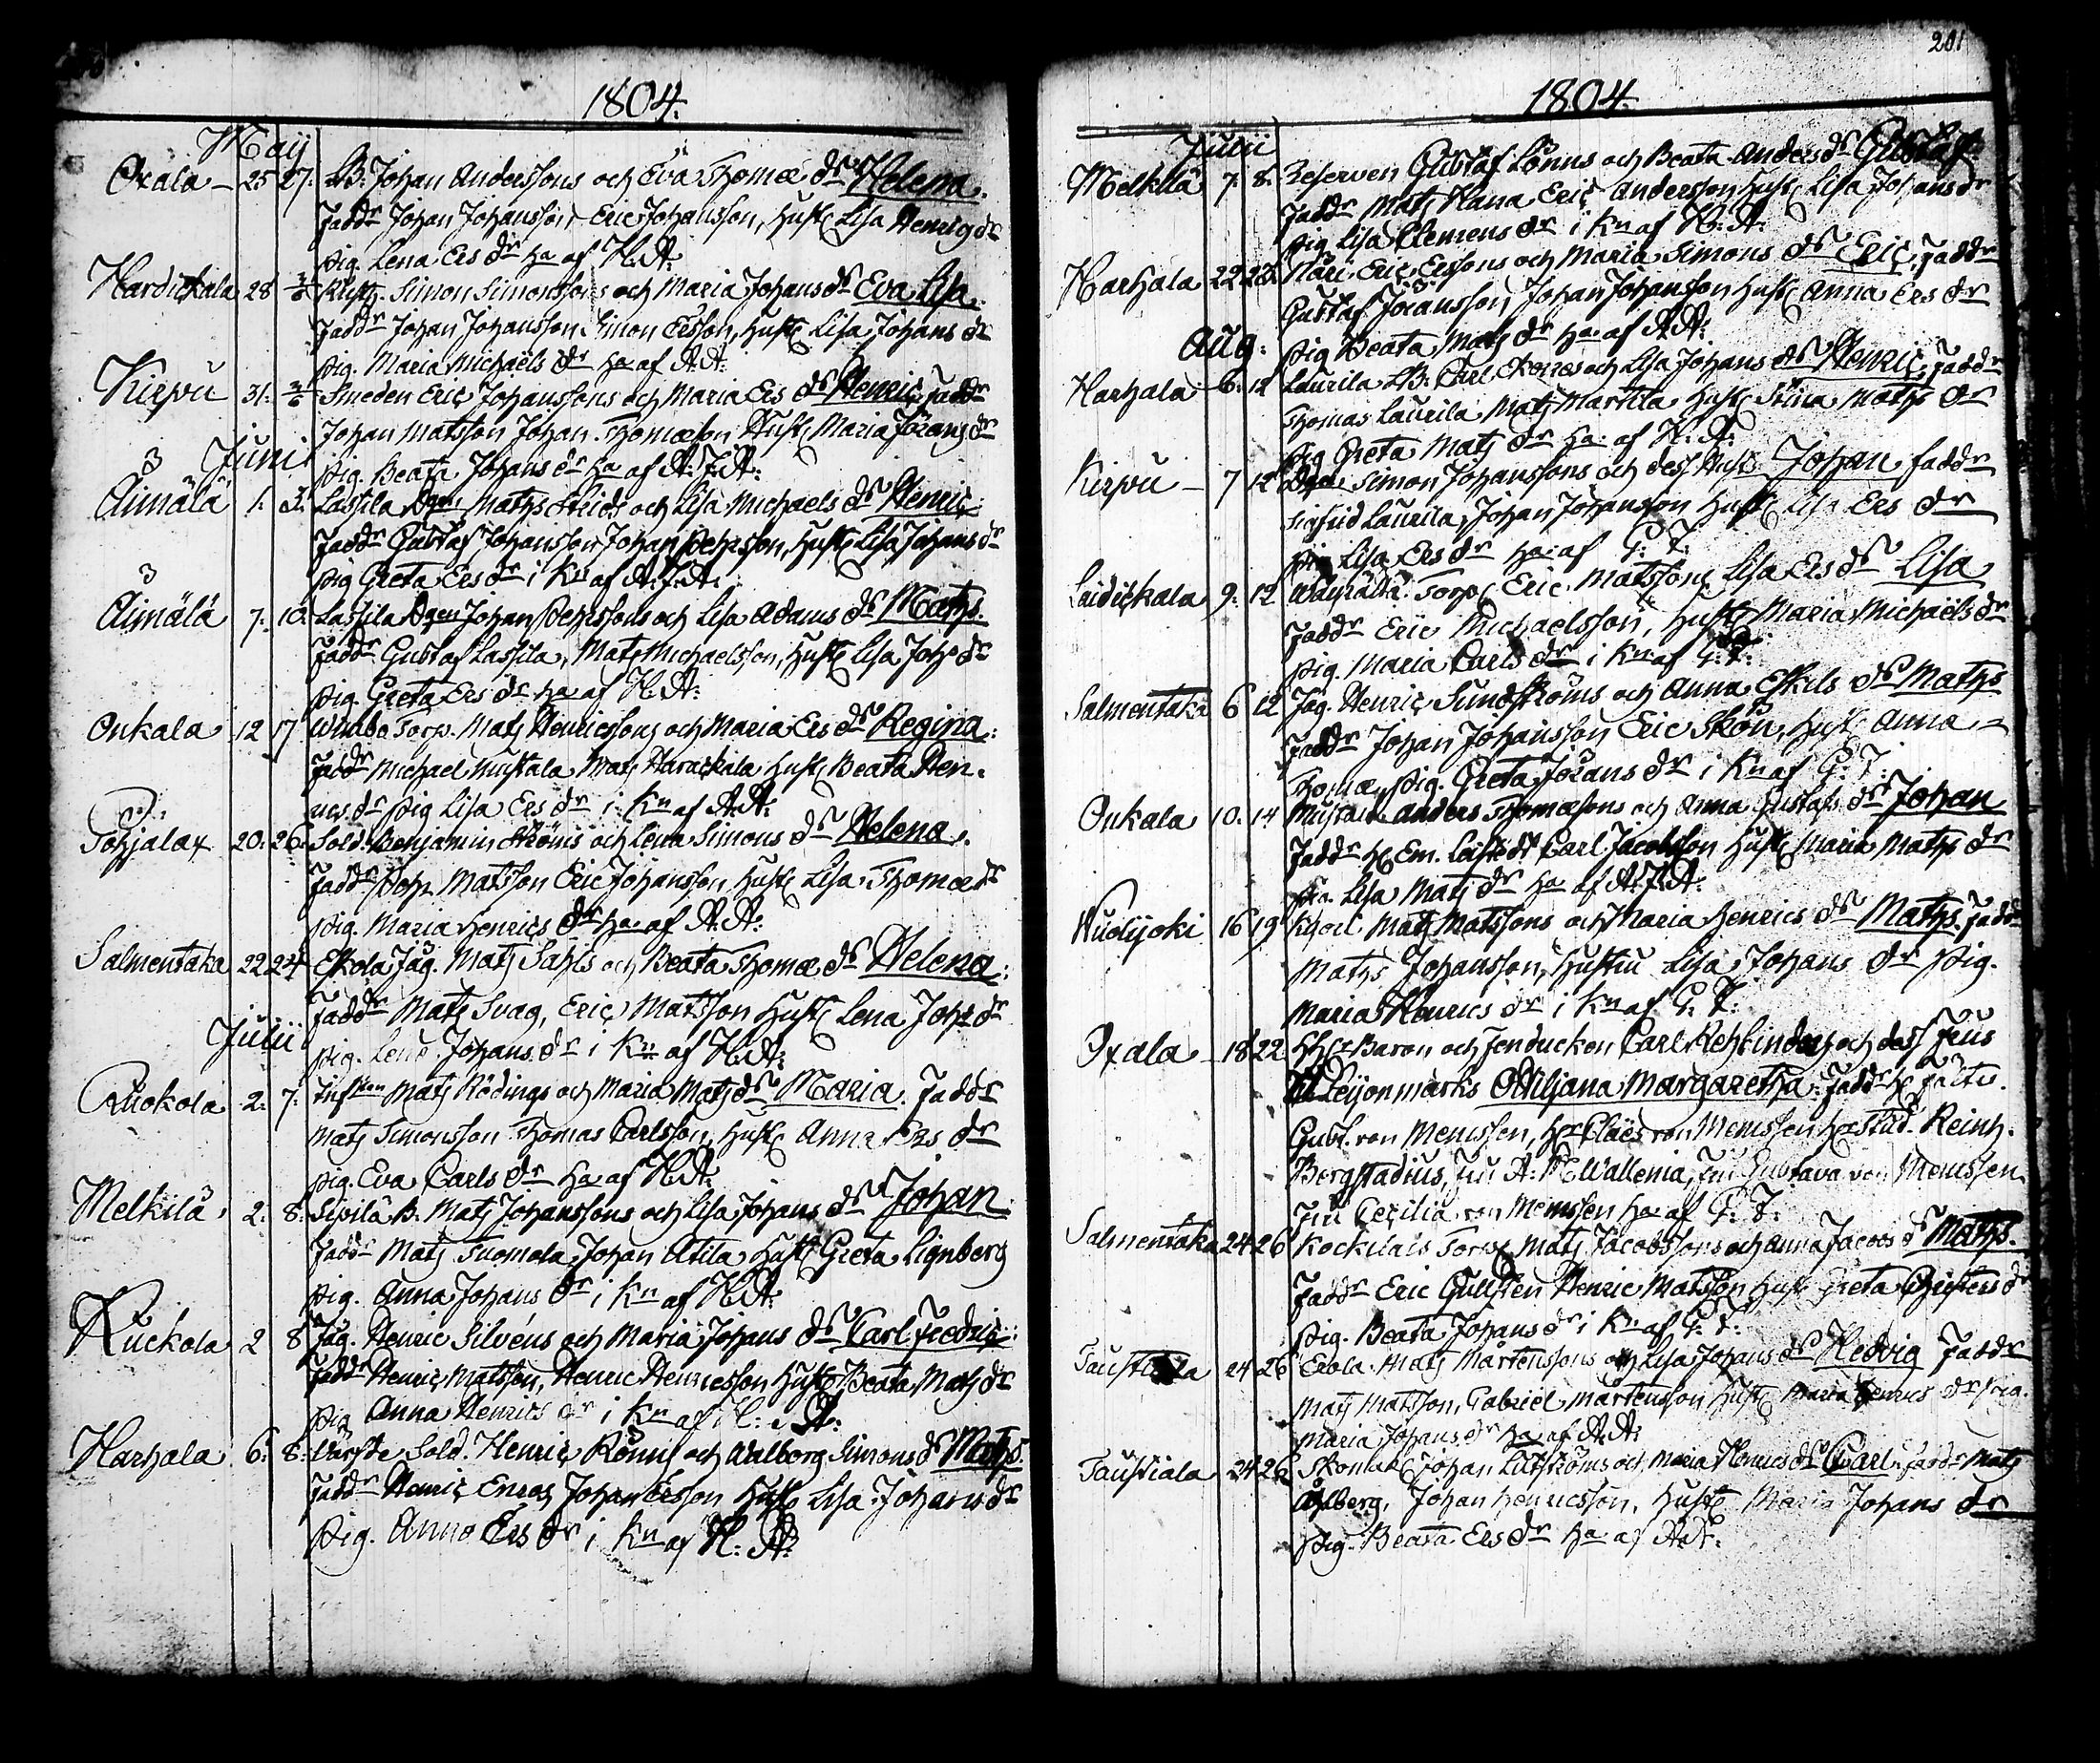 1804.
Maij
Oxala 25 27. LB. Johan Anderssons och Eva Thomæ dr Helena.
Faddr Johan Johansson Eric Johansson, Hust. Lisa Henrigs dr
pig. Lena Ers dr ha af H. A:
Hardickala 28 3/6 Simon Simonssons och Maria Johans dr Eva Lisa
Faddr Johan Johansson Simon Ersson, Hust. Lisa Johans dr
pig. Maria Michaëls dr ha af A A:
Kirpu 31. 3/6 Smeden Eric Johanssons och Maria Ers dr Henric faddr
Johan Matsson Johan Thomæson Hust. Maria Jörans dr
pig. Beata Johans dr ha af A. J. A:
Junii
Äimälä 1. 3. Lassila Dgn Mathς och Lisa Michaels dr Henric
Faddr Gustaf Johansson Johan Pehrsson, Hust. Lisa Johans dr
pig Greta Ers dr i Kn af A. J. A:
Äimälä 7. 10. Lassila Dgn Johan Pehrssons och Lisa Adams dr Maths.
Faddr Gustaf Lassila, Mats Michaelsson, Hust. Lisa Joh. dr
pig Greta Ers dr ha af H. A:
Onkala 12 17 Torp. Mats Henricssons och Maria Ers dr Regina.
Faddr Michael Mustala Mats Harackala Hust. Beata Hen-
rics dr pig Lisa Ers dr i Kn af A A:
Pohjalax 20. 26. Sold. Benjamin Ströms och Lena Simons dr Helena.
Faddr Joh. Matsson Eric Johansson Hust. Lisa Thomæ dr
pig. Maria Henrics dr ha af A. A:
Salmentaka 22 24 Eskola Jäg. Mats Sahls och Beata Thomæ dr Helena.
Faddr Mats Svag, Eric Matsson Hust. Lena Joh. dr
Julii
pig. Lena Johans dr i Kn af H. A:
Ruokola 2. 7. Mats Rödings och Maria Mats dr Maria. Faddr
Mats Simonsson Thomas Carlsson, Hust. Anna Ers dr
pig. Eva Carls dr ha af H. A:
Melkilä 2. 8. Sipilä B. Mats Johanssons och Lisa Johans dr Johan
Faddr Mats Tuomola, Johan Atila Hust. Greta Lignberg
pig. Anna Johans dr i Kn af H. A:
Ruokola 2 8 Jäg. Henric Silvéns och Maria Johans dr Carl Fredric
Faddr Henric Matsson, Henric Henricsson Hust. Beata Mats dr
pig Anna Henrics dr i Kn af H. A:
Harhala 6. 8. Sold. Henric Rönns och Walborg Simons dr Maths.
Faddr Henric Eneas Johan Ersson Hust. Lisa Johans dr
pig. Anna Ers dr i Kn af H. A:
201
1804.
Julii
Melkilä 7. 8. Reserven Gustaf Lönns och Beata Anders dr Gustaf
Faddr Mats Kana Eric Andersson Hust. Lisa Johans dr
pig. Lisa Clemens dr i Kn af H. A:
Harhala 22 23. Eric Erssons och Maria Simons dr Eric, Faddr
Gustaf Göransson, Johan Johansson Hust. Anna Ers dr
Aug: pig Beata Mats dr ha af A A:
Harhala 6. 12 Laurila LB. Carl och Lisa Johans dr Henric. Faddr
Thomas Laurila Mats Martila Hust. Stina Maths dr
pig Greta Mats dr ha af H. A:
Kirpu 7 12 Dgn Simon Johanssons och dess Hust. Johan faddr
Sigfrid Laurila, Johan Johansson Hust. Lisa Ers dr
pig Lisa Ers dr ha af G. T:
Laidickala 9. 12 Torp. Eric Matssons Lisa Ers dr Lisa
Faddr Eric Michaelsson, Hust. Maria Michaëls dr
pig. Maria Carls dr i Kn af G. T:
Salmentaka 6 12 Jäg. Henric Sundströms och Anna Eskils dr Maths
Faddr Johan Johansson Eric Skön, Hust. Anna
Thomæ, pig. Greta Jörans dr i Kn af G. T.
Onkala 10. 14 Mustala Anders Thomæsons och Anna Gustafs dr Johan
Faddr H. Em. Carl Jacobsson Hust. Maria Maths dr
pig. Lisa Mats dr ha af A. J. A:
Nuolijoki 16 19 Mats Matssons och Maria Henrics dr Maths. Faddr
Maths Johansson, Hustru Lisa Johans dr pig.
Maria Henrics dr i Kn af G. T:
Oxala 18 22 Baron och Carl Rehbinders och dess Frus
Leijonmarks Odiljana Margaretha. Faddr H.
Gust. von Memssen, Claës von Memssen Stud. Reinh.
Bergstadius, Fru A: Wallenia, Fru Gustava von Memssen
Fru Cecilia von Memssen ha af G. T:
Salmentaka 24 26 Torp. Mats Jacobssons och Anna Jacobs dr Maths.
Faddr Eric Gullsten Henric Matsson Hust. Greta Christers dr
pig. Beata Johans dr i Kn af G. T:
Taustiala 24 26 Erola Mats Mårtenssons och Lisa Johans dr Hedvig Faddr
Mats Matsson, Gabriel Mårtensson Hust. Maria Henrics dr pig.
Maria Johans dr ha af A A:
Taustiala 24 26 Skomak. Johan och Maria Henrics dr Carl. Faddr Mats
Ahlberg, Johan Henricsson, Hust. Maria Johans dr
pig. Beata Ers dr ha af A. A: